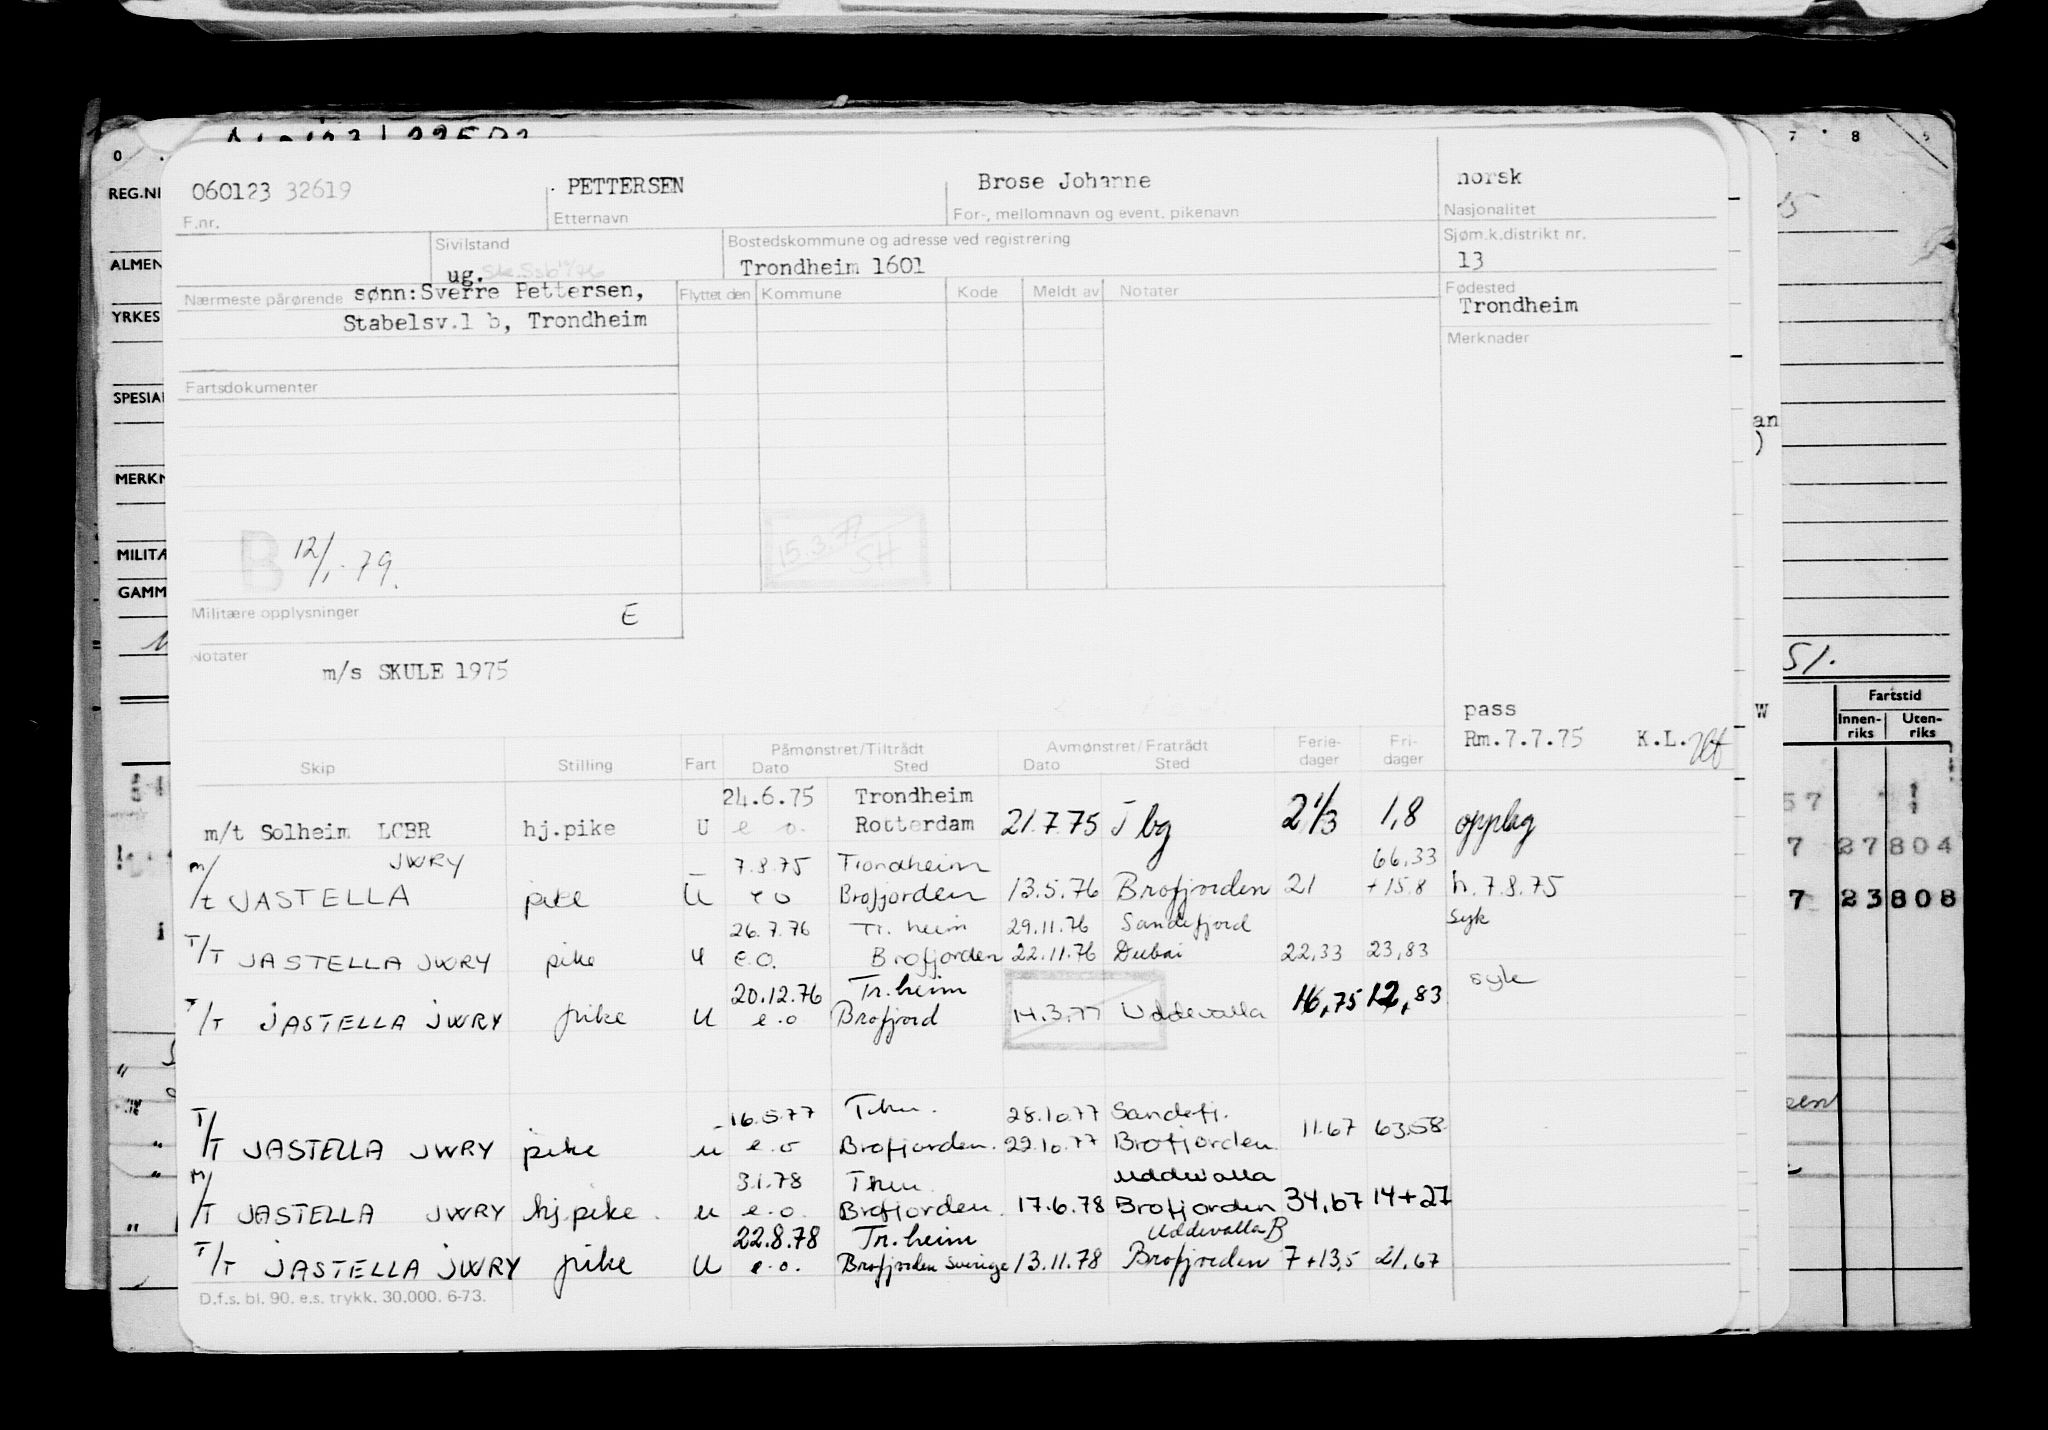 060123 32619
PETTERSEN
Brose Johanne
norsk
F.nr.
Etternavn
For-, mellomnavn og event. pikenavn
Nasjonalitet
Sivilstand
Bostedskommune og adresse ved registrering
Sjøm.k.distrikt nr.
ug.
Trondheim 1601
13
Nærmeste pårørende sønn:Sverre Pettersen,
Flyttet den Kommune Kode Meldt av Notater
Fødested
Trondheim
Stabelsv.1 b, Trondheim
Merknader
Fartsdokumenter
B 12/1-79.
15.3.77
SH
Militære opplysninger E
Notater
m/s SKULE 1975
pass
Rm.7.7.75 K.L.
Påmønstret/Tiltrådt Avmønstret/Fratrådt Ferie- Fri-
Skip Stilling Fart Dato Sted Dato Sted dager dager
24.6.75 Trondheim
m/t Solheim LCBR hj.pike U e o. Rotterdam 21.7.75 Tbg 2 1/3 1,8 opplag
M/ JWRY 7.8.75 Trondheim 66,33
/t JASTELLA pike U e o Brofjorden 13.5.76 Brofjorden 21 +15,8 h. 7.8.75
26.7.76 Tr. heim 29.11.76 Sandefjord syk
T/T JASTELLA JWRY pike U e.o. Brofjorden 22.11.76 Dubai 22,33 23,83
20.12.76 Tr.heim syk
T/T JASTELLA JWRY pike U e.o Brofjord 14.3.77 Uddevalla 16,75 12,83
16.5.77 Thm. 28.10.77 Sandefj.
T/T JASTELLA JWRY pike u e.o Brofjorden. 22.10.77 Brofjorden 11.67 63.58
3.1.78 Thm. Uddevalla
M/T JASTELLA JWRY hj.pike. u e.o. Brofjorden. 17.6.78 Brofjorden 34,67 14+27
22.8.78 Tr.heim Uddevalla B
T/T JASTELLA JWRY pike U e.o. Brofjorden Sverige 13.11.78 Brofjorden 7+13,5 21,67
D.f.s. bl. 90. e.s. trykk. 30.000. 6-73.
0
REG.NR
ALMEN
YRKES
SPESIAL
MERKN
MILITÆ
GAMM
7 8
an
)
51.
W
Fartstid
Innen- Uten-
riks riks
57
7 27 804
7 23 808